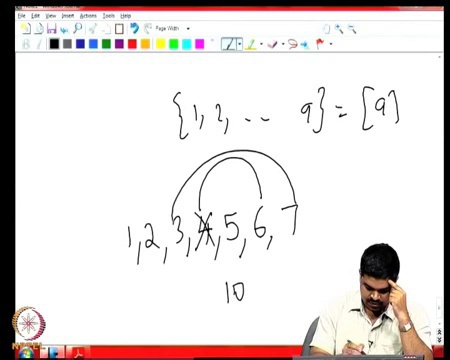 File Edit View Insert Actions Tools Help
Page Width
{1, 2, .. 9} = [9]
1, 2, 3, 4, 5, 6, 7
10